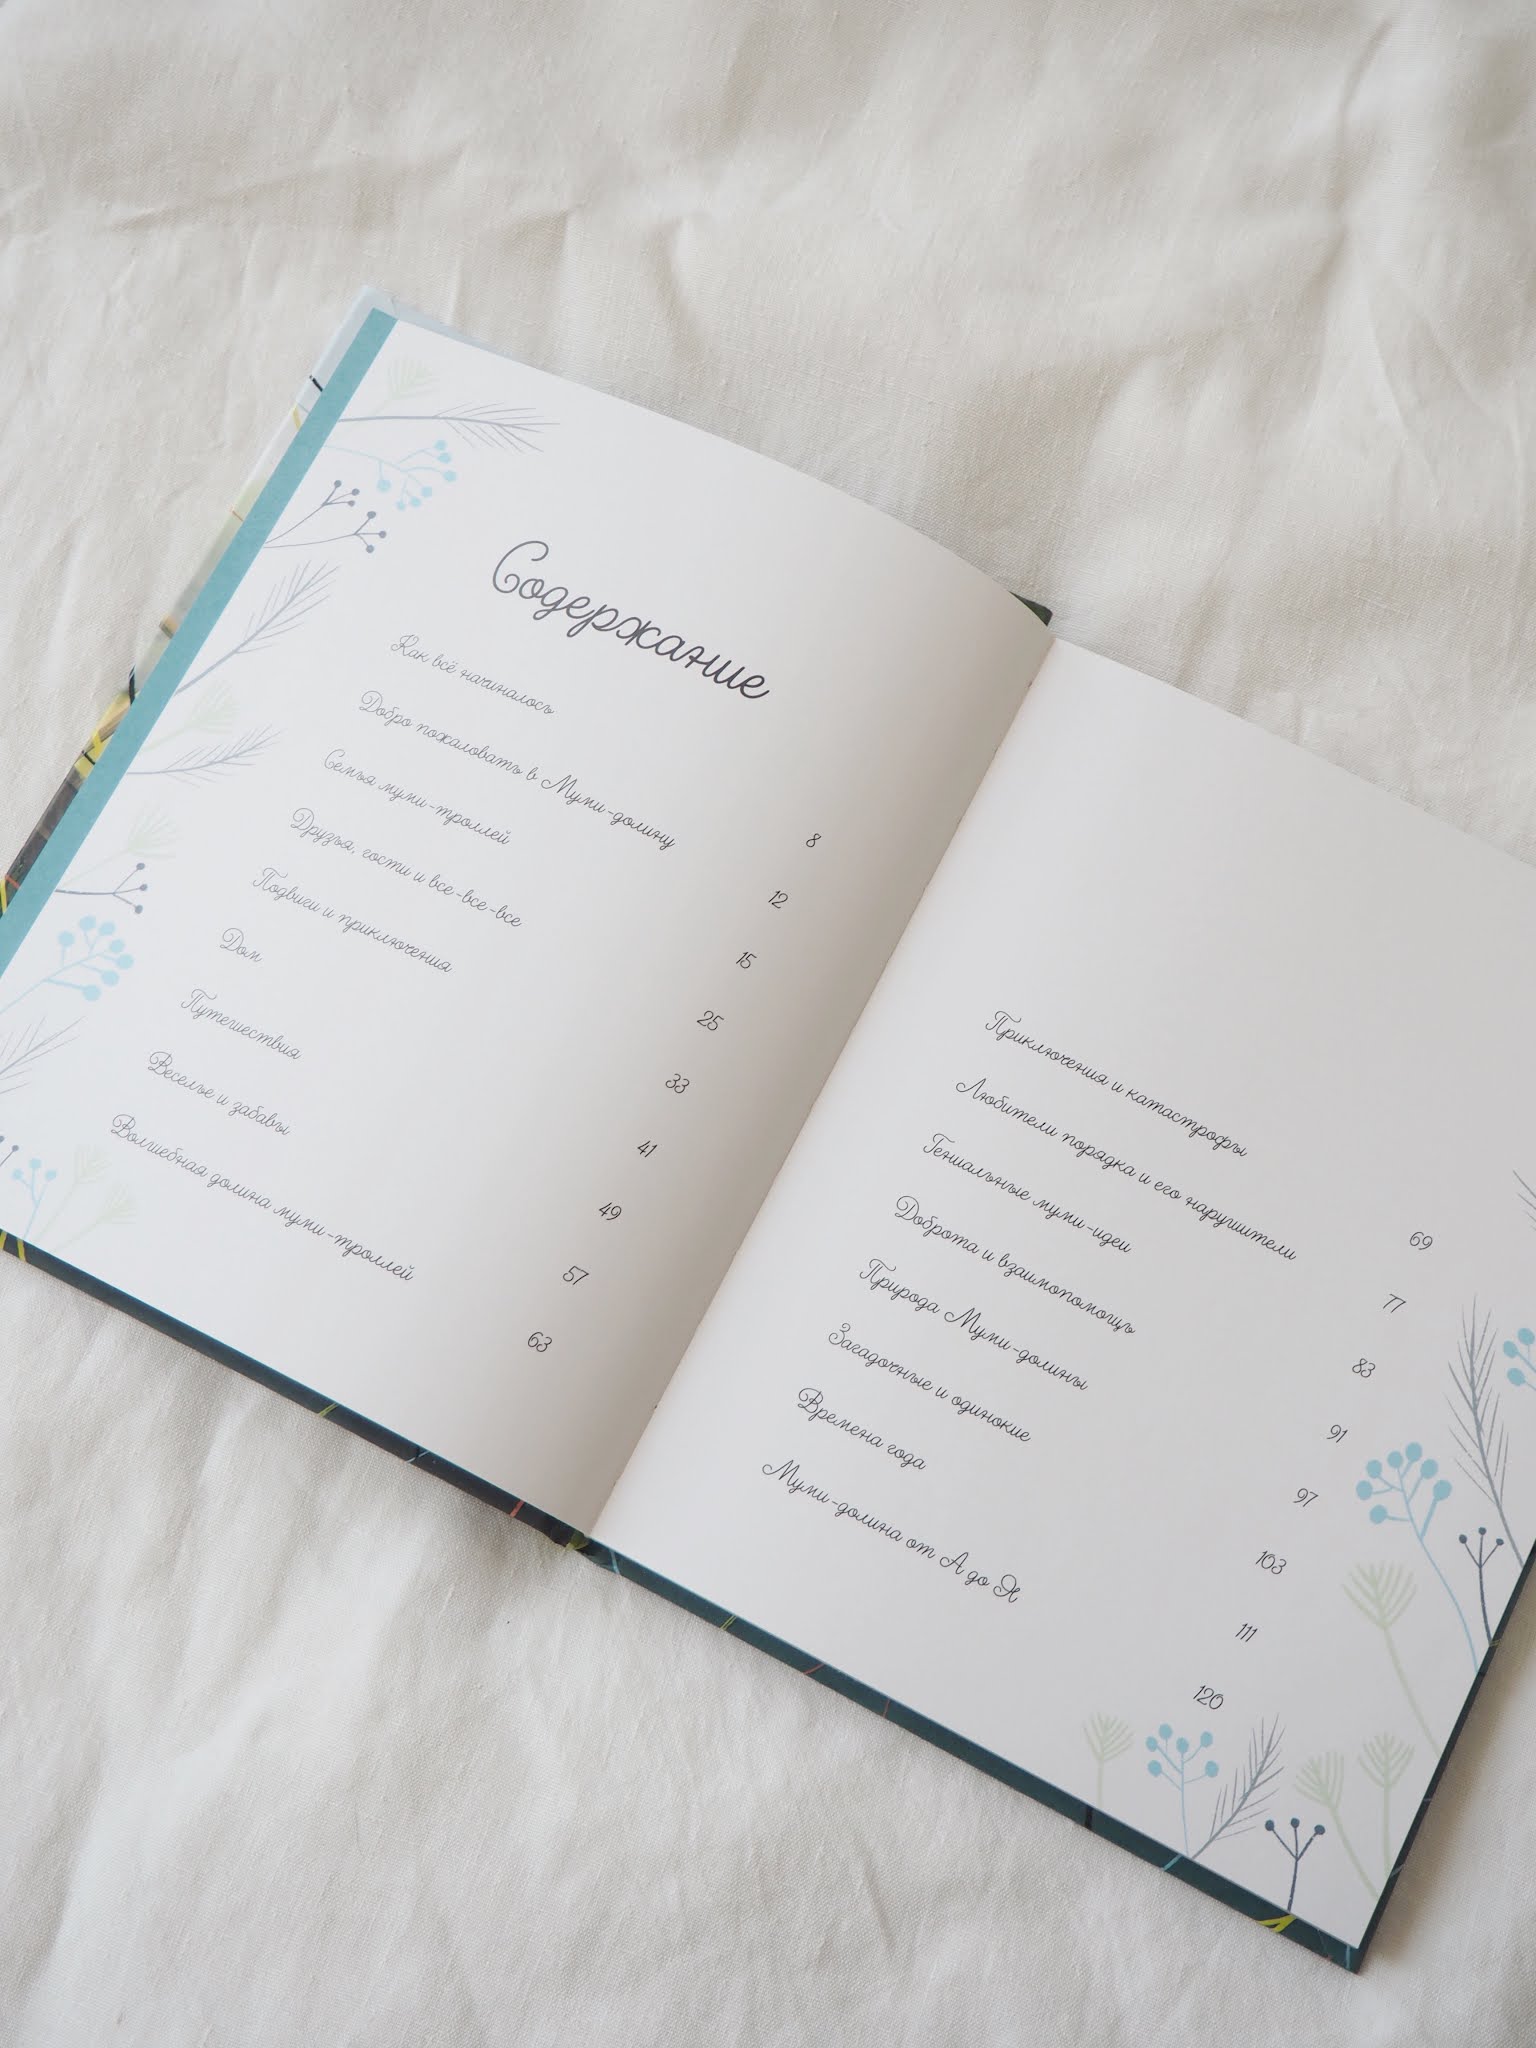 Содержание
Как всё начиналось 8
Добро пожаловать в Муми-долину 12
Семья муми-троллей 15
Друзья, гости и все-все-все 25
Подвиги и приключения 33
Дом 41
Путешествия 49
Веселье и забавы 57
Волшебная долина муми-троллей 63
Приключения и катастрофы 69
Любители порядка и его нарушители 77
Гениальные муми-идеи 83
Доброта и взаимопомощь 91
Природа Муми-долины 97
Загадочные и одинокие 103
Времена года 111
Муми-долина от А до Я 120